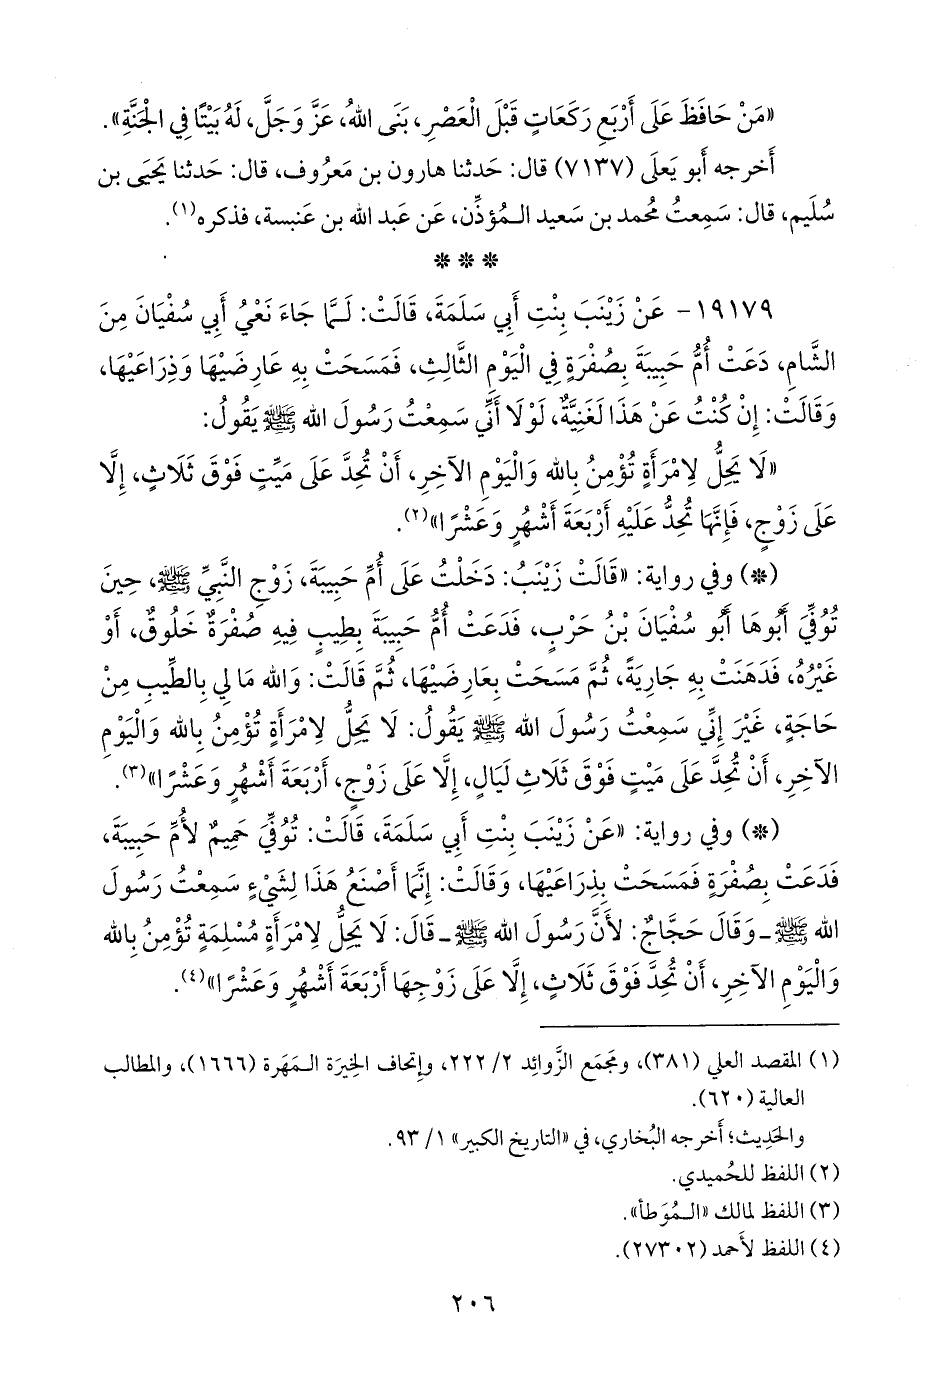 «مَنْ حَافَظَ عَلَى أَرْبَعِ رَكَعَاتٍ قَبْلَ الْعَصْرِ، بَنَى اللهُ، عَزَّ وَجَلَّ، لَهُ بَيْتًا فِي الْجَنَّةِ».
أَخرجه أَبو يَعلَى (٧١٣٧) قال: حَدثنا هارون بن مَعرُوف، قال: حَدثنا يَحيَى بن
سُلَيم، قال: سَمِعتُ مُحمد بن سَعيد الـمُؤذِّن، عَن عَبد الله بن عَنبسة، فذكره(١).
* * *
١٩١٧٩- عَنْ زَيْنَبَ بِنْتِ أَبِي سَلَمَةَ، قَالَتْ: لَـمَّا جَاءَ نَعْيُ أَبِي سُفْيَانَ مِنَ
الشَّامِ، دَعَتْ أُمُّ حَبِيبَةَ بِصُفْرَةٍ فِي الْيَوْمِ الثَّالِثِ، فَمَسَحَتْ بِهِ عَارِضَيْهَا وَذِرَاعَيْهَا،
وَقَالَتْ: إِنْ كُنْتُ عَنْ هَذَا لَغَنِيَّةً، لَوْلَا أَنِّي سَمِعْتُ رَسُولَ الله ﷺ يَقُولُ:
«لَا يَحِلُّ لِامْرَأَةٍ تُؤْمِنُ بِالله وَالْيَوْمِ الآخِرِ، أَنْ تُحِدَّ عَلَى مَيِّتٍ فَوْقَ ثَلَاثٍ، إِلَّا
عَلَى زَوْجٍ، فَإِنَّهَا تُحِدُّ عَلَيْهِ أَرْبَعَةَ أَشْهُرٍ وَعَشْرًا»(٢).
(*) وفي رواية: «قَالَتْ زَيْنَبُ: دَخَلْتُ عَلَى أُمِّ حَبِيبَةَ، زَوْجِ النَّبِيِّ ﷺ، حِينَ
تُوُفِّيَ أَبُوهَا أَبُو سُفْيَانَ بْنُ حَرْبٍ، فَدَعَتْ أُمُّ حَبِيبَةَ بِطِيبٍ فِيهِ صُفْرَةٌ خَلُوقٌ، أَوْ
غَيْرُهُ، فَدَهَنَتْ بِهِ جَارِيَةً، ثُمَّ مَسَحَتْ بِعَارِضَيْهَا، ثُمَّ قَالَتْ: وَالله مَا لِي بِالطِّيبِ مِنْ
حَاجَةٍ، غَيْرَ إِنِّي سَمِعْتُ رَسُولَ الله ﷺ يَقُولُ: لَا يَحِلُّ لِامْرَأَةٍ تُؤْمِنُ بِالله وَالْيَوْمِ
الآخِرِ، أَنْ تُحِدَّ عَلَى مَيْتٍ فَوْقَ ثَلَاثِ لَيَالٍ، إِلَّا عَلَى زَوْجٍ، أَرْبَعَةَ أَشْهُرٍ وَعَشْرًا»(٣).
(*) وفي رواية: «عَنْ زَيْنَبَ بِنْتِ أَبِي سَلَمَةَ، قَالَتْ: تُوُفِّيَ حَمِيمٌ لأُمِّ حَبِيبَةَ،
فَدَعَتْ بِصُفْرَةٍ فَمَسَحَتْ بِذِرَاعَيْهَا، وَقَالَتْ: إِنَّمَا أَصْنَعُ هَذَا لِشَيْءٍ سَمِعْتُ رَسُولَ
الله ﷺ ـ وَقَالَ حَجَّاجٌ: لأَنَّ رَسُولَ الله ﷺ ـ قَالَ: لَا يَحِلُّ لِامْرَأَةٍ مُسْلِمَةٍ تُؤْمِنُ بِالله
وَالْيَوْمِ الآخِرِ، أَنْ تُحِدَّ فَوْقَ ثَلَاثٍ، إِلَّا عَلَى زَوْجِهَا أَرْبَعَةَ أَشْهُرٍ وَعَشْرًا»(٤).
(١) المقصد العلي (٣٨١)، ومَجمَع الزَّوائِد ٢/ ٢٢٢، وإتحاف الخِيرَة الـمَهَرة (١٦٦٦)، والمطالب
العالية (٦٢٠).
والحَدِيث؛ أَخرجه البُخاري، في «التاريخ الكبير» ١/ ٩٣.
(٢) اللفظ للحُميدي.
(٣) اللفظ لمالك «الـمُوَطأ».
(٤) اللفظ لأَحمد (٢٧٣٠٢).
٢٠٦